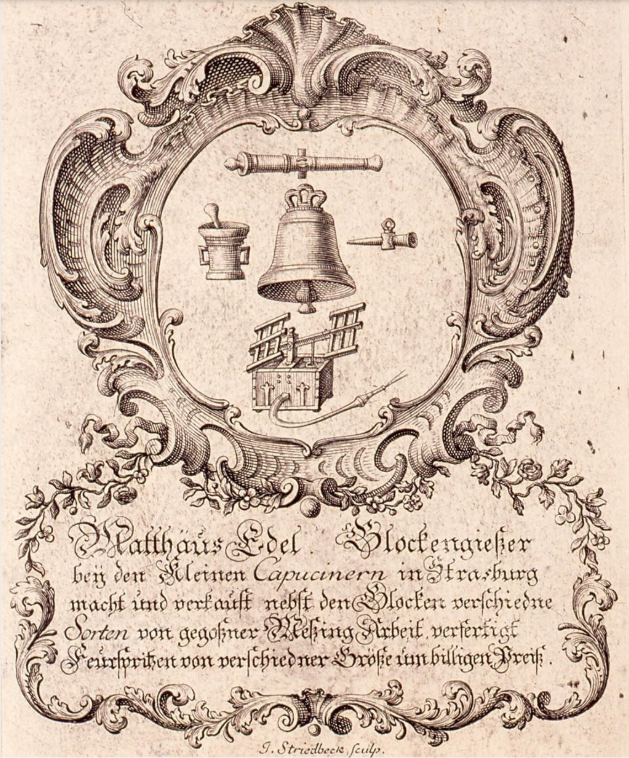 Matthäus Edel. Glockengießer
bey den Kleinen Capucinern in Strasburg
macht und verkauft nebst den Glocken verschiedne
Sorten von gegoßner Meßing Arbeit, verfertigt
Feurspritzen von verschiedner Größe um billigen Preiß.
J. Striedbeck, sculp.